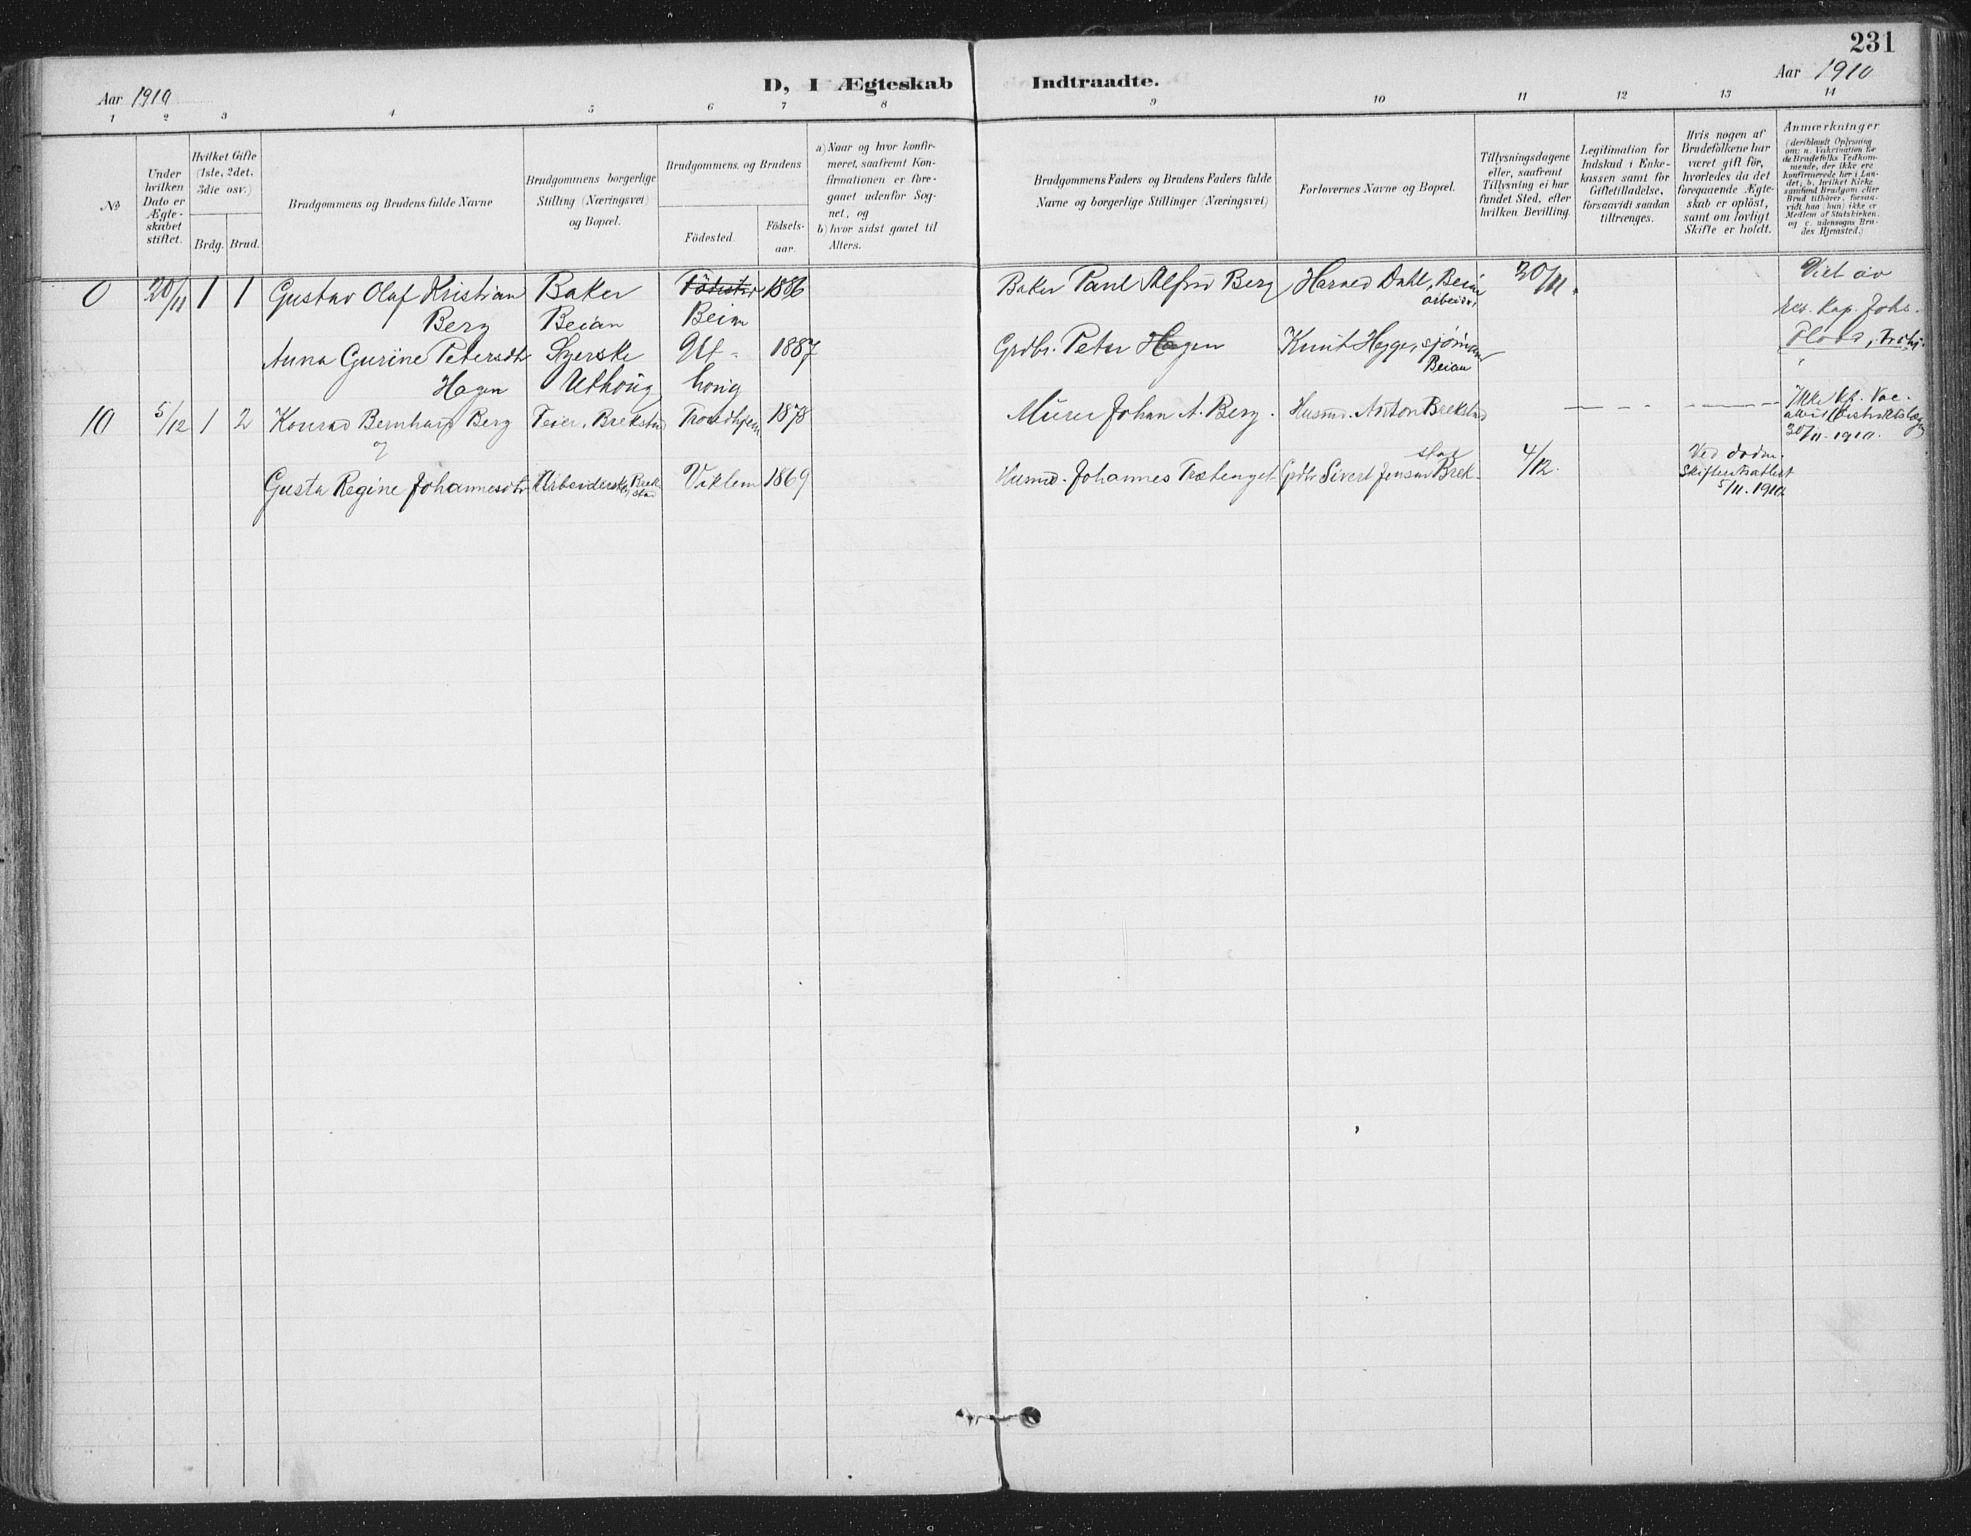 231
Aar 1910
D, I Ægteskab Indtraadte.
Aar 1910
1 2 3 4 5 6 7 8 9 10 11 12 13 14
№
Under hvilken Dato er Ægteskabet stiftet.
Hvilket Gifte (1ste, 2det, 3die osv.)
Brdg. Brud.
Brudgommens og Brudens fulde Navne
Brudgommens borgerlige Stilling (Næringsvei) og Bopæl.
Brudgommens og Brudens
Fødested.
Fødselsaar.
a) Naar og hvor konfirmeret, saafremt Konfirmationen er foregaaet udenfor Sognet, og
b) hvor sidst gaaet til Alters.
Brudgommens Faders og Brudens Faders fulde Navne og borgerlige Stillinger (Næringsvei)
Forlovernes Navne og Bopæl.
Tillysningsdagene eller, saafremt Tillysning ei har fundet Sted, efter hvilken Bevilling.
Legitimation for Indskud i Enkekassen samt for Giftetilladelse, forsaavidt saadan tiltrænges.
Hvis nogen af Brudefolkene har været gift før, hvorledes da det foregaaende Ægteskab er opløst, samt om lovligt Skifte er holdt.
Anmærkninger
(deriblandt Oplysning om: a. Vakcination for de Brudefolks Vedkommende, der ikke ere konfirmerede her i Landet; b. hvilket Kirkesamfund Brudgom eller Brud tilhører, forsaavidt han (hun) ikke er Medlem af Statskirken, og c. udensogns Brudes Hjemsted.)
0 20/11 1 1 Gustav Olaf Kristian Baker 1886 Baker Paul Alfred Berg Harald Dahl, Beian 20/11. Viet av
Berg Beian Beian arbeider, res. kap. Johs.
Anna Gurine Petersdtr Syerske Ut- 1887 Grdbr. Peter Hagen Knut Hegge, sjømand
Hagen Uthoug houg Beian
10 5/12 1 2 Konrad Bernhard Berg Feier, Brekstad Trondhjem 1878 Murer Johan A. Berg. Husmd. Anton Brekstad
30/11. 1910.
Gusta Regine Johannesdtr Arbeiderske, Brekstad Viklem 1869 Husmd. Johannes Trætenget Grdbr. Sivert Jensen Brekstad 4/12. Ved døden.
Skifteretsattest
5/11. 1910